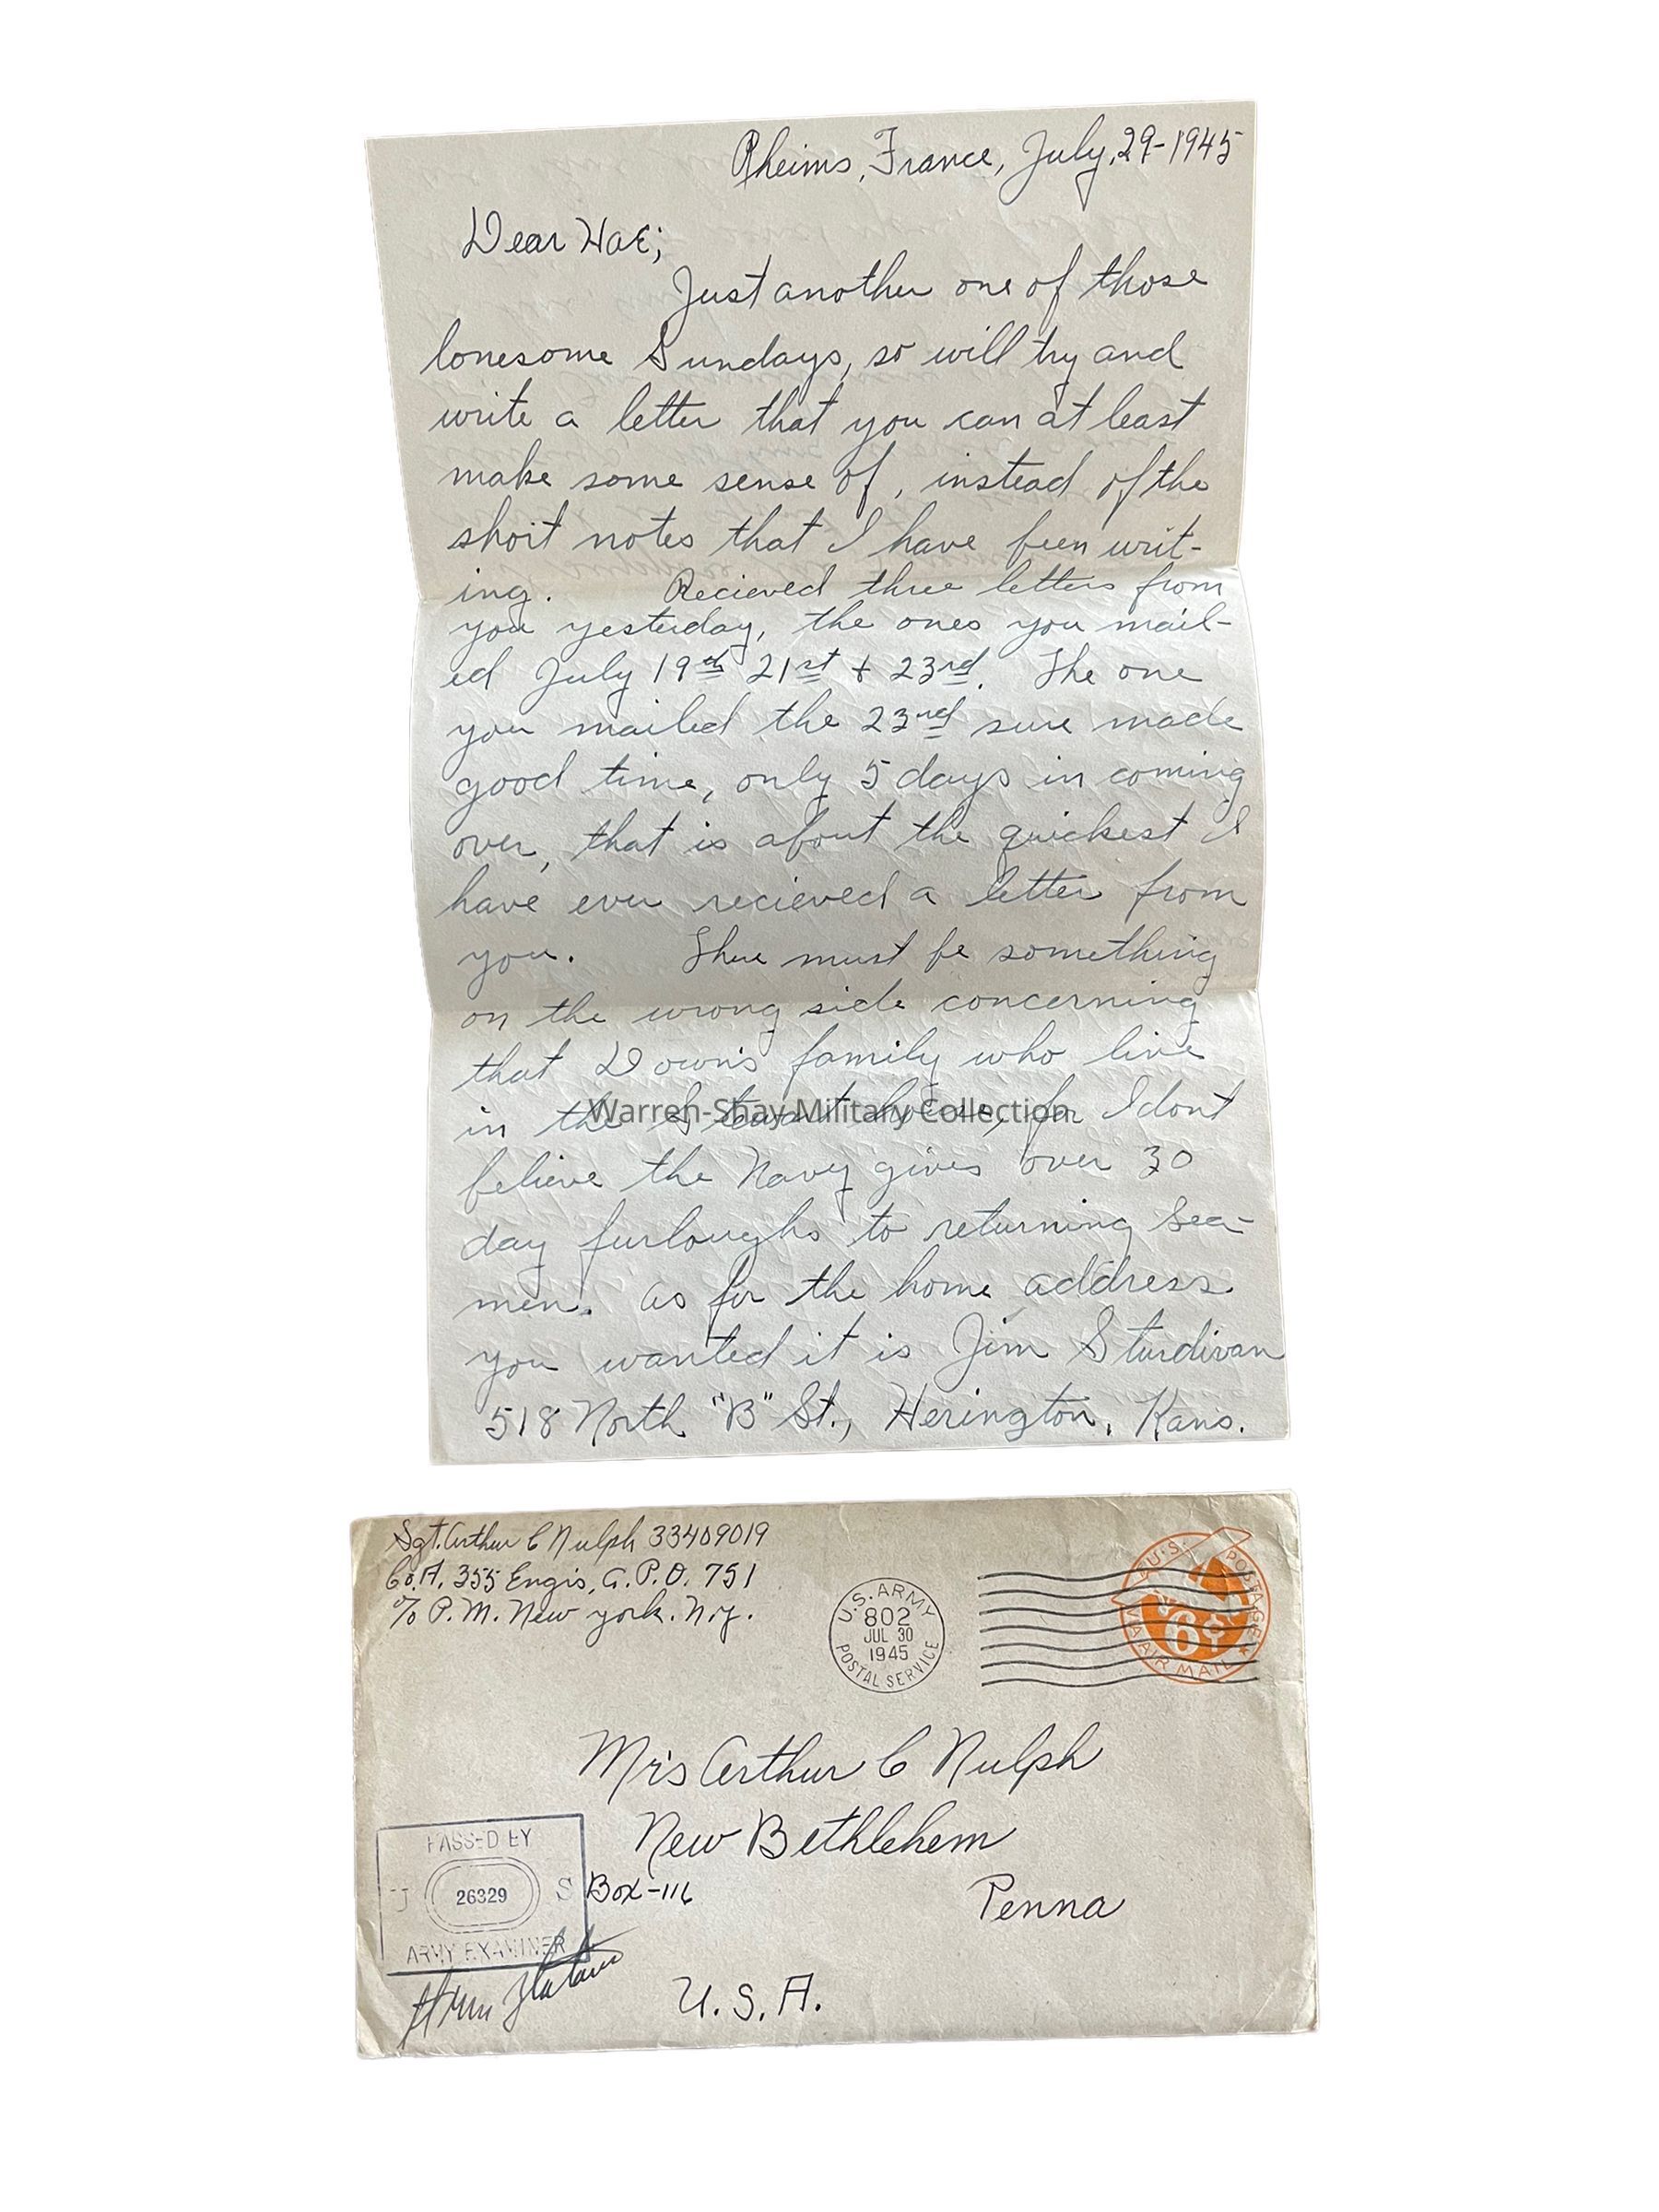 Rheims, France, July, 29-1945
Dear Hae;
Just another one of those
lonesome Sundays, so will try and
write a letter that you can at least
make some sense of, instead of the
short notes that I have been writ-
ing. Recieved three letters from
you yesterday, the ones you mail-
ed July 19th 21st + 23rd. The one
you mailed the 23rd sure made
good time, only 5 days in coming
over, that is about the quickest I
have ever recieved a letter from
you. There must be something
on the wrong side concerning
that Down's family who live
in the house, for I dont
believe the Navy gives over 30
day furloughs to returning Sea-
men. As for the home address
you wanted it is Jim Sturdivan
518 North "B" St., Herington, Kans.
Warren-Shay Military Collection
Sgt. Arthur C Nulph 33409019
Co. A. 355 Engrs, A.P.O. 751
c/o P.M. New york. N.y.
U.S. ARMY
802
JUL 30
1945
POSTAL SERVICE
U.S. POSTAGE
6¢
VIA AIR MAIL
Mrs Arthur C Nulph
New Bethlehem
Box-116
Penna
U.S.A.
PASSED BY
U 26329 S
ARMY EXAMINER